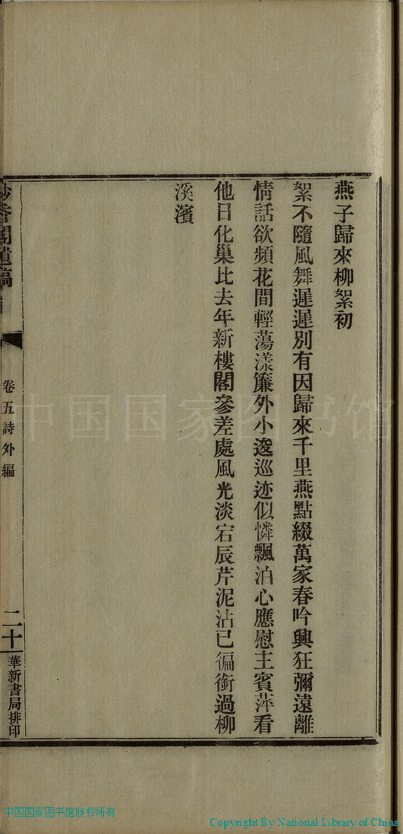 燕子歸來柳絮初
絮不隨風舞遲遲別有因歸來千里燕點綴萬家春吟興狂彌遠離
情話欲頻花間輕蕩漾簾外小逡巡迹似憐飄泊心應慰主賓萍看
他日化巢比去年新樓閣參差處風光淡宕辰芹泥沾已徧銜過柳
溪濱
香閣遺稿
卷五詩外編
二十
華新書局排印
中国国家图书馆
中国国家图书馆版权所有
Copyright By National Library of China